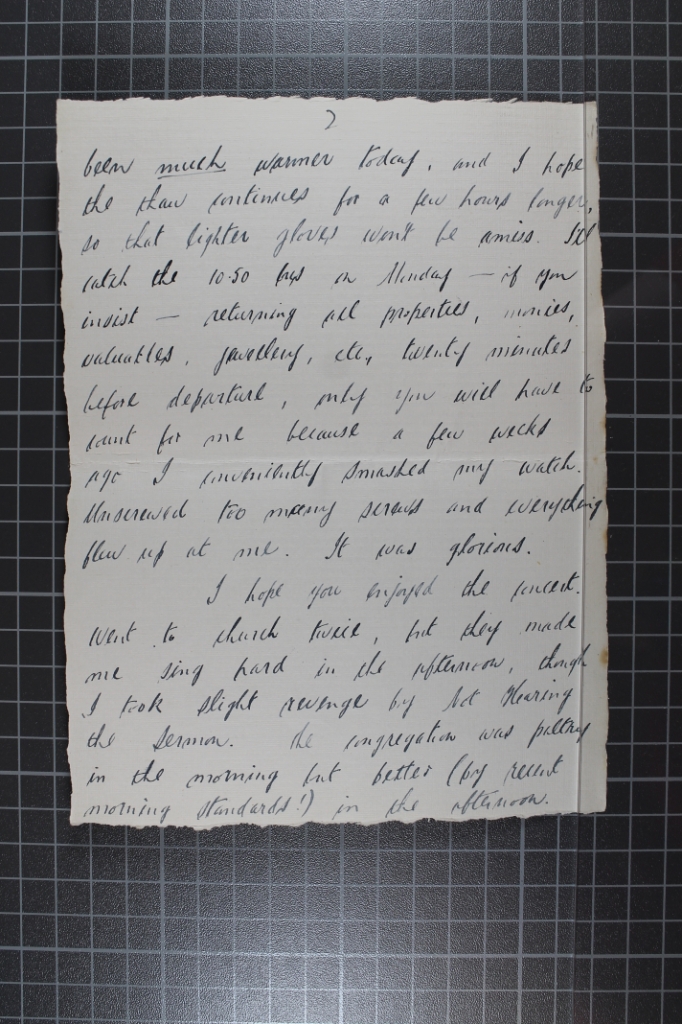 2
been much warmer today, and I hope
the thaw continues for a few hours longer,
so that lighter gloves won't be amiss. I'll
catch the 10.50 bus on Monday — if you
insist — returning all properties, monies,
valuables, jewellery, etc, twenty minutes
before departure, only you will have to
count for me because a few weeks
ago I conveniently smashed my watch.
Unscrewed too many screws and everything
flew up at me. It was glorious.
I hope you enjoyed the concert.
Went to church twice, but they made
me sing hard in the afternoon, though
I took slight revenge by Not Hearing
the Sermon. The congregation was paltry
in the morning but better (by recent
morning standards!) in the afternoon.